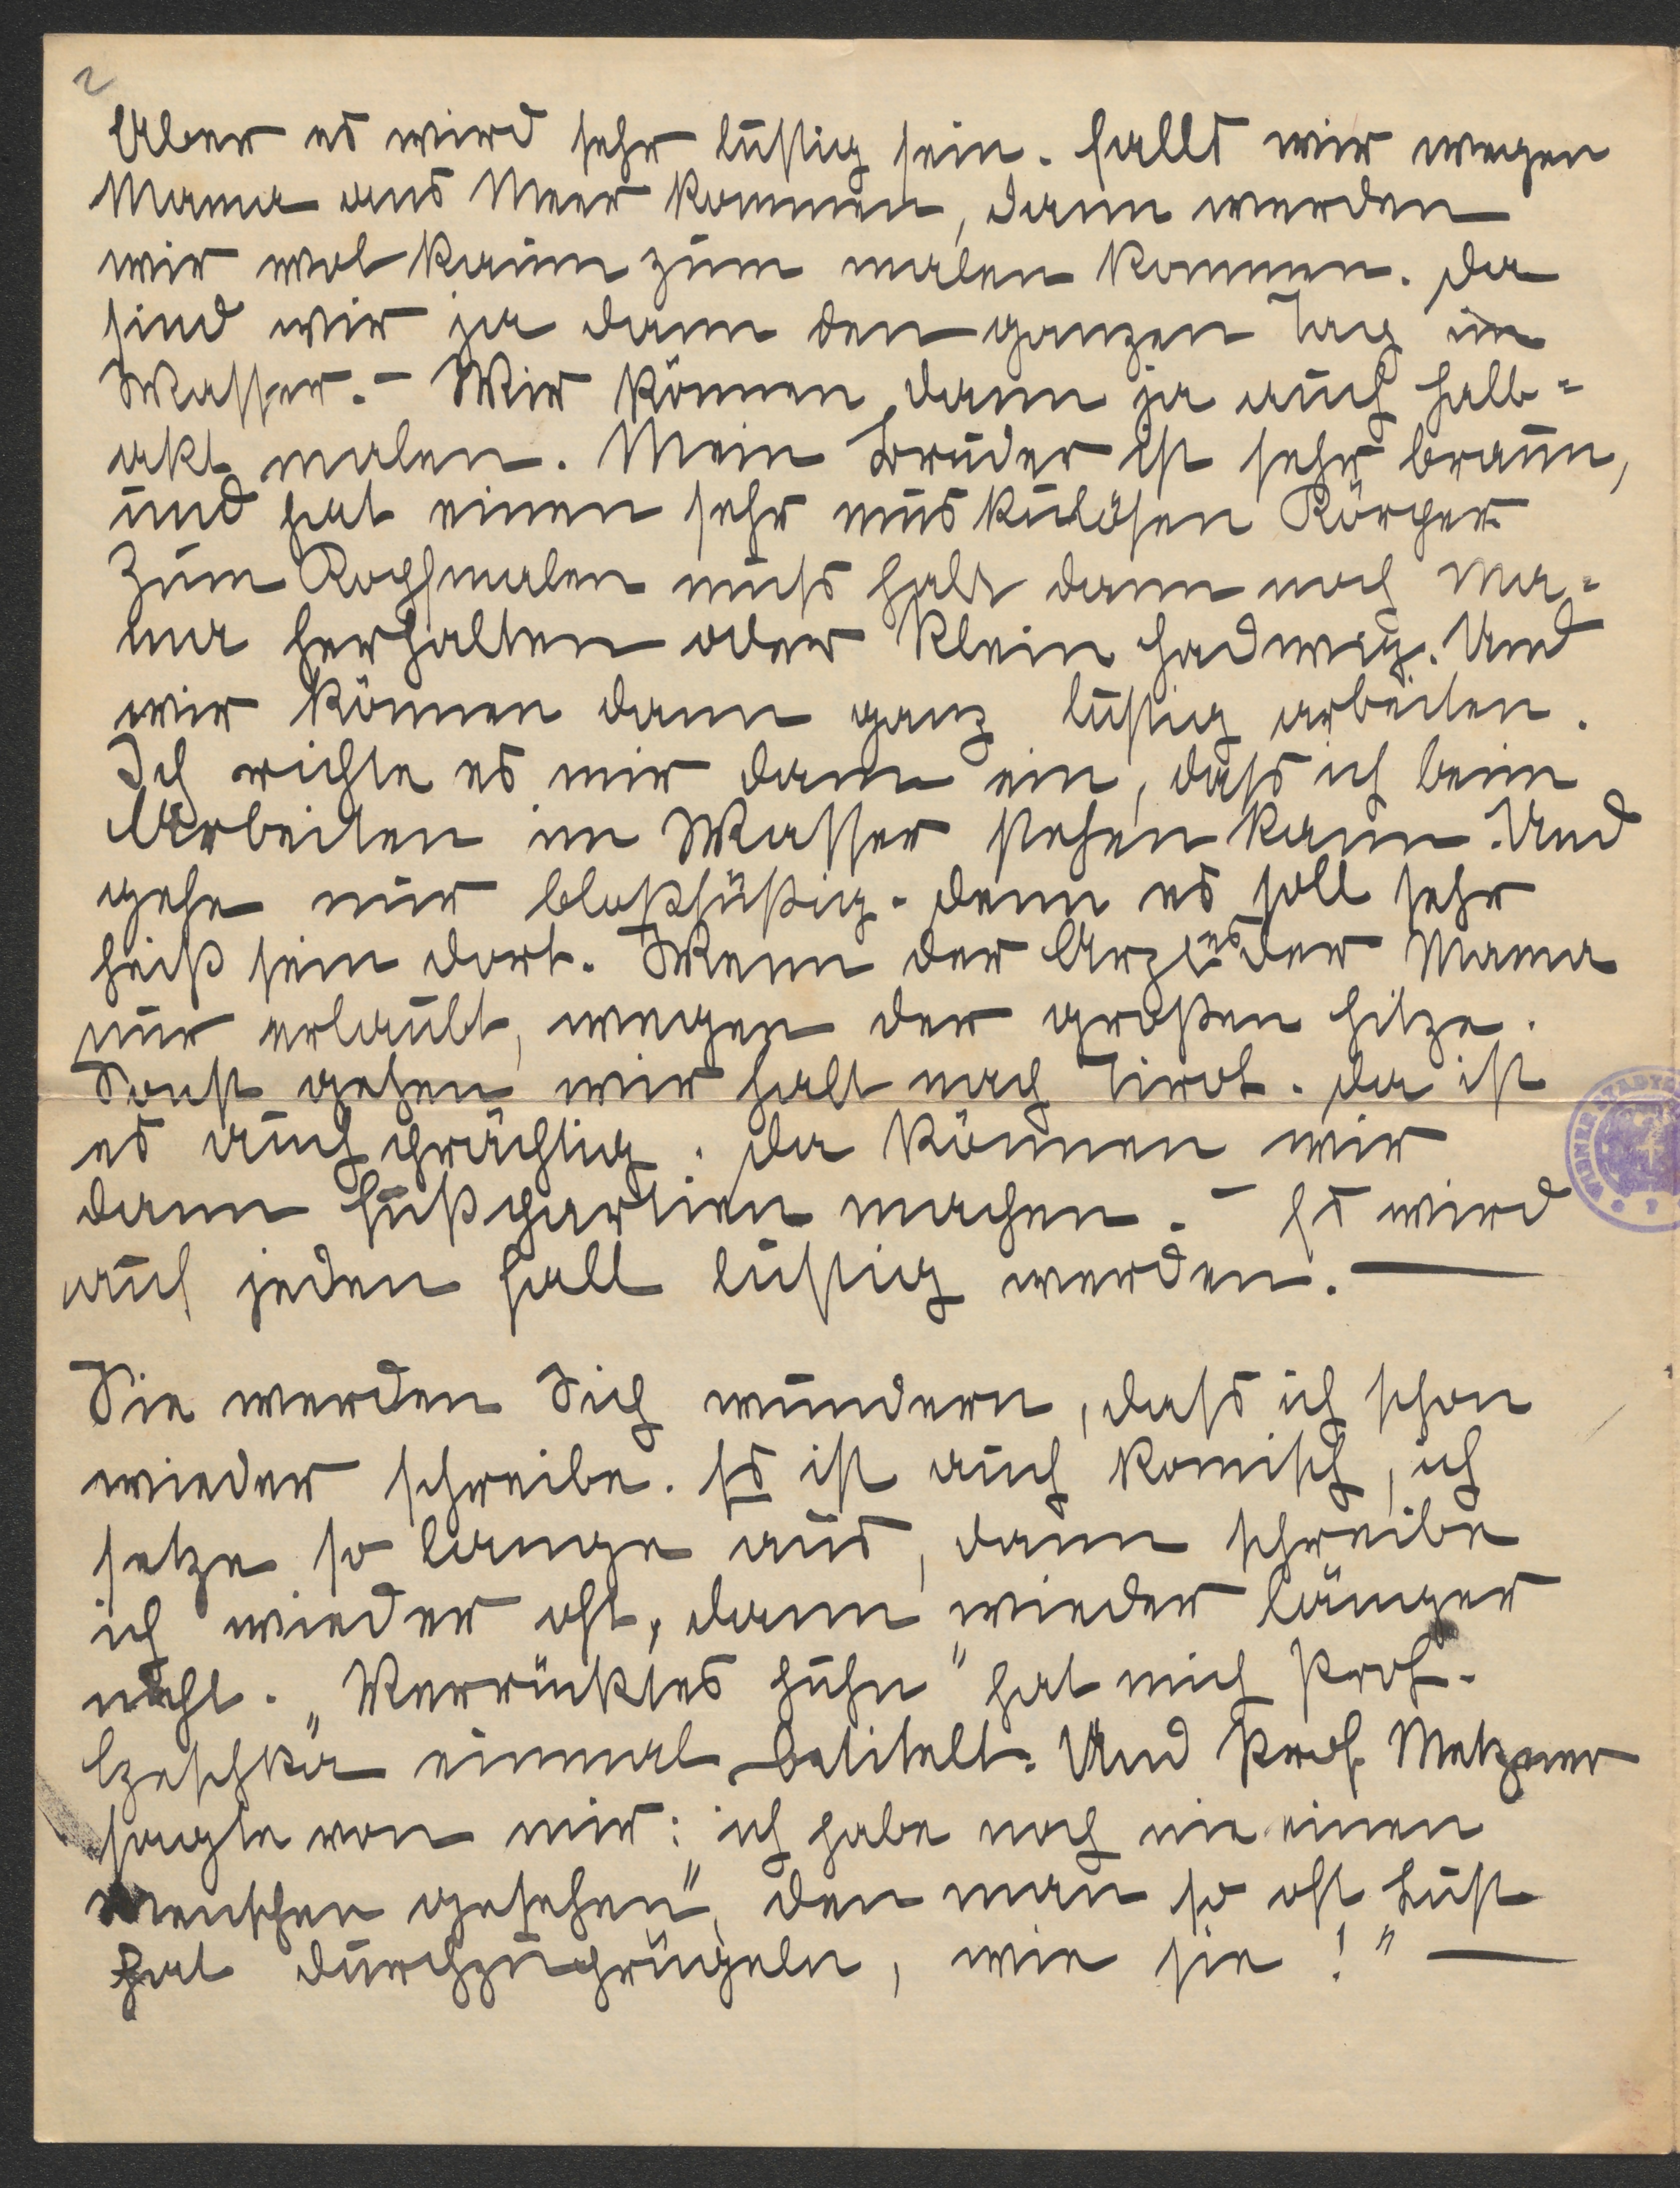 2
Aber es wird sehr lustig sein. Falls wir wegen
Mama ans Meer kommen, dann werden
wir wol kaum zum malen kommen. Da
sind wir ja dann den ganzen Tag im
Wasser. – Wir können dann ja auch halb=
akt malen. Mein Bruder ist sehr braun,
und hat einen sehr muskulösen Körper.
Zum Kopfmalen muss halt dann noch Ma=
ma herhalten oder Klein Hadwig. Und
wir können dann ganz lustig arbeiten.
Ich richte es mir dann ein, dass ich beim
Arbeiten im Wasser stehen kann. Und
gehe nur bloßfüßig. denn es soll sehr
heiß sein dort. Wenn der Arzt es der Mama
nur erlaubt, wegen der großen Hitze.
Sonst gehen wir halt nach Tirol. da ist
es auch prächtig. da können wir
dann Fußpartien machen. – Es wird
auf jeden Fall lustig werden. —
Sie werden Sich wundern, dass ich schon
wieder schreibe. Es ist auch komisch, ich
setze so lange aus, dann schreibe
ich wieder oft, dann wieder länger
nicht. „Verrücktes Huhn" hat mich Prof.
Czeschka einmal betitelt. Und Prof. Metzner
sagte von mir: ich habe noch nie einen
Menschen gesehen", den man so oft Lust
hat durchzuprügeln, wie sie!" —